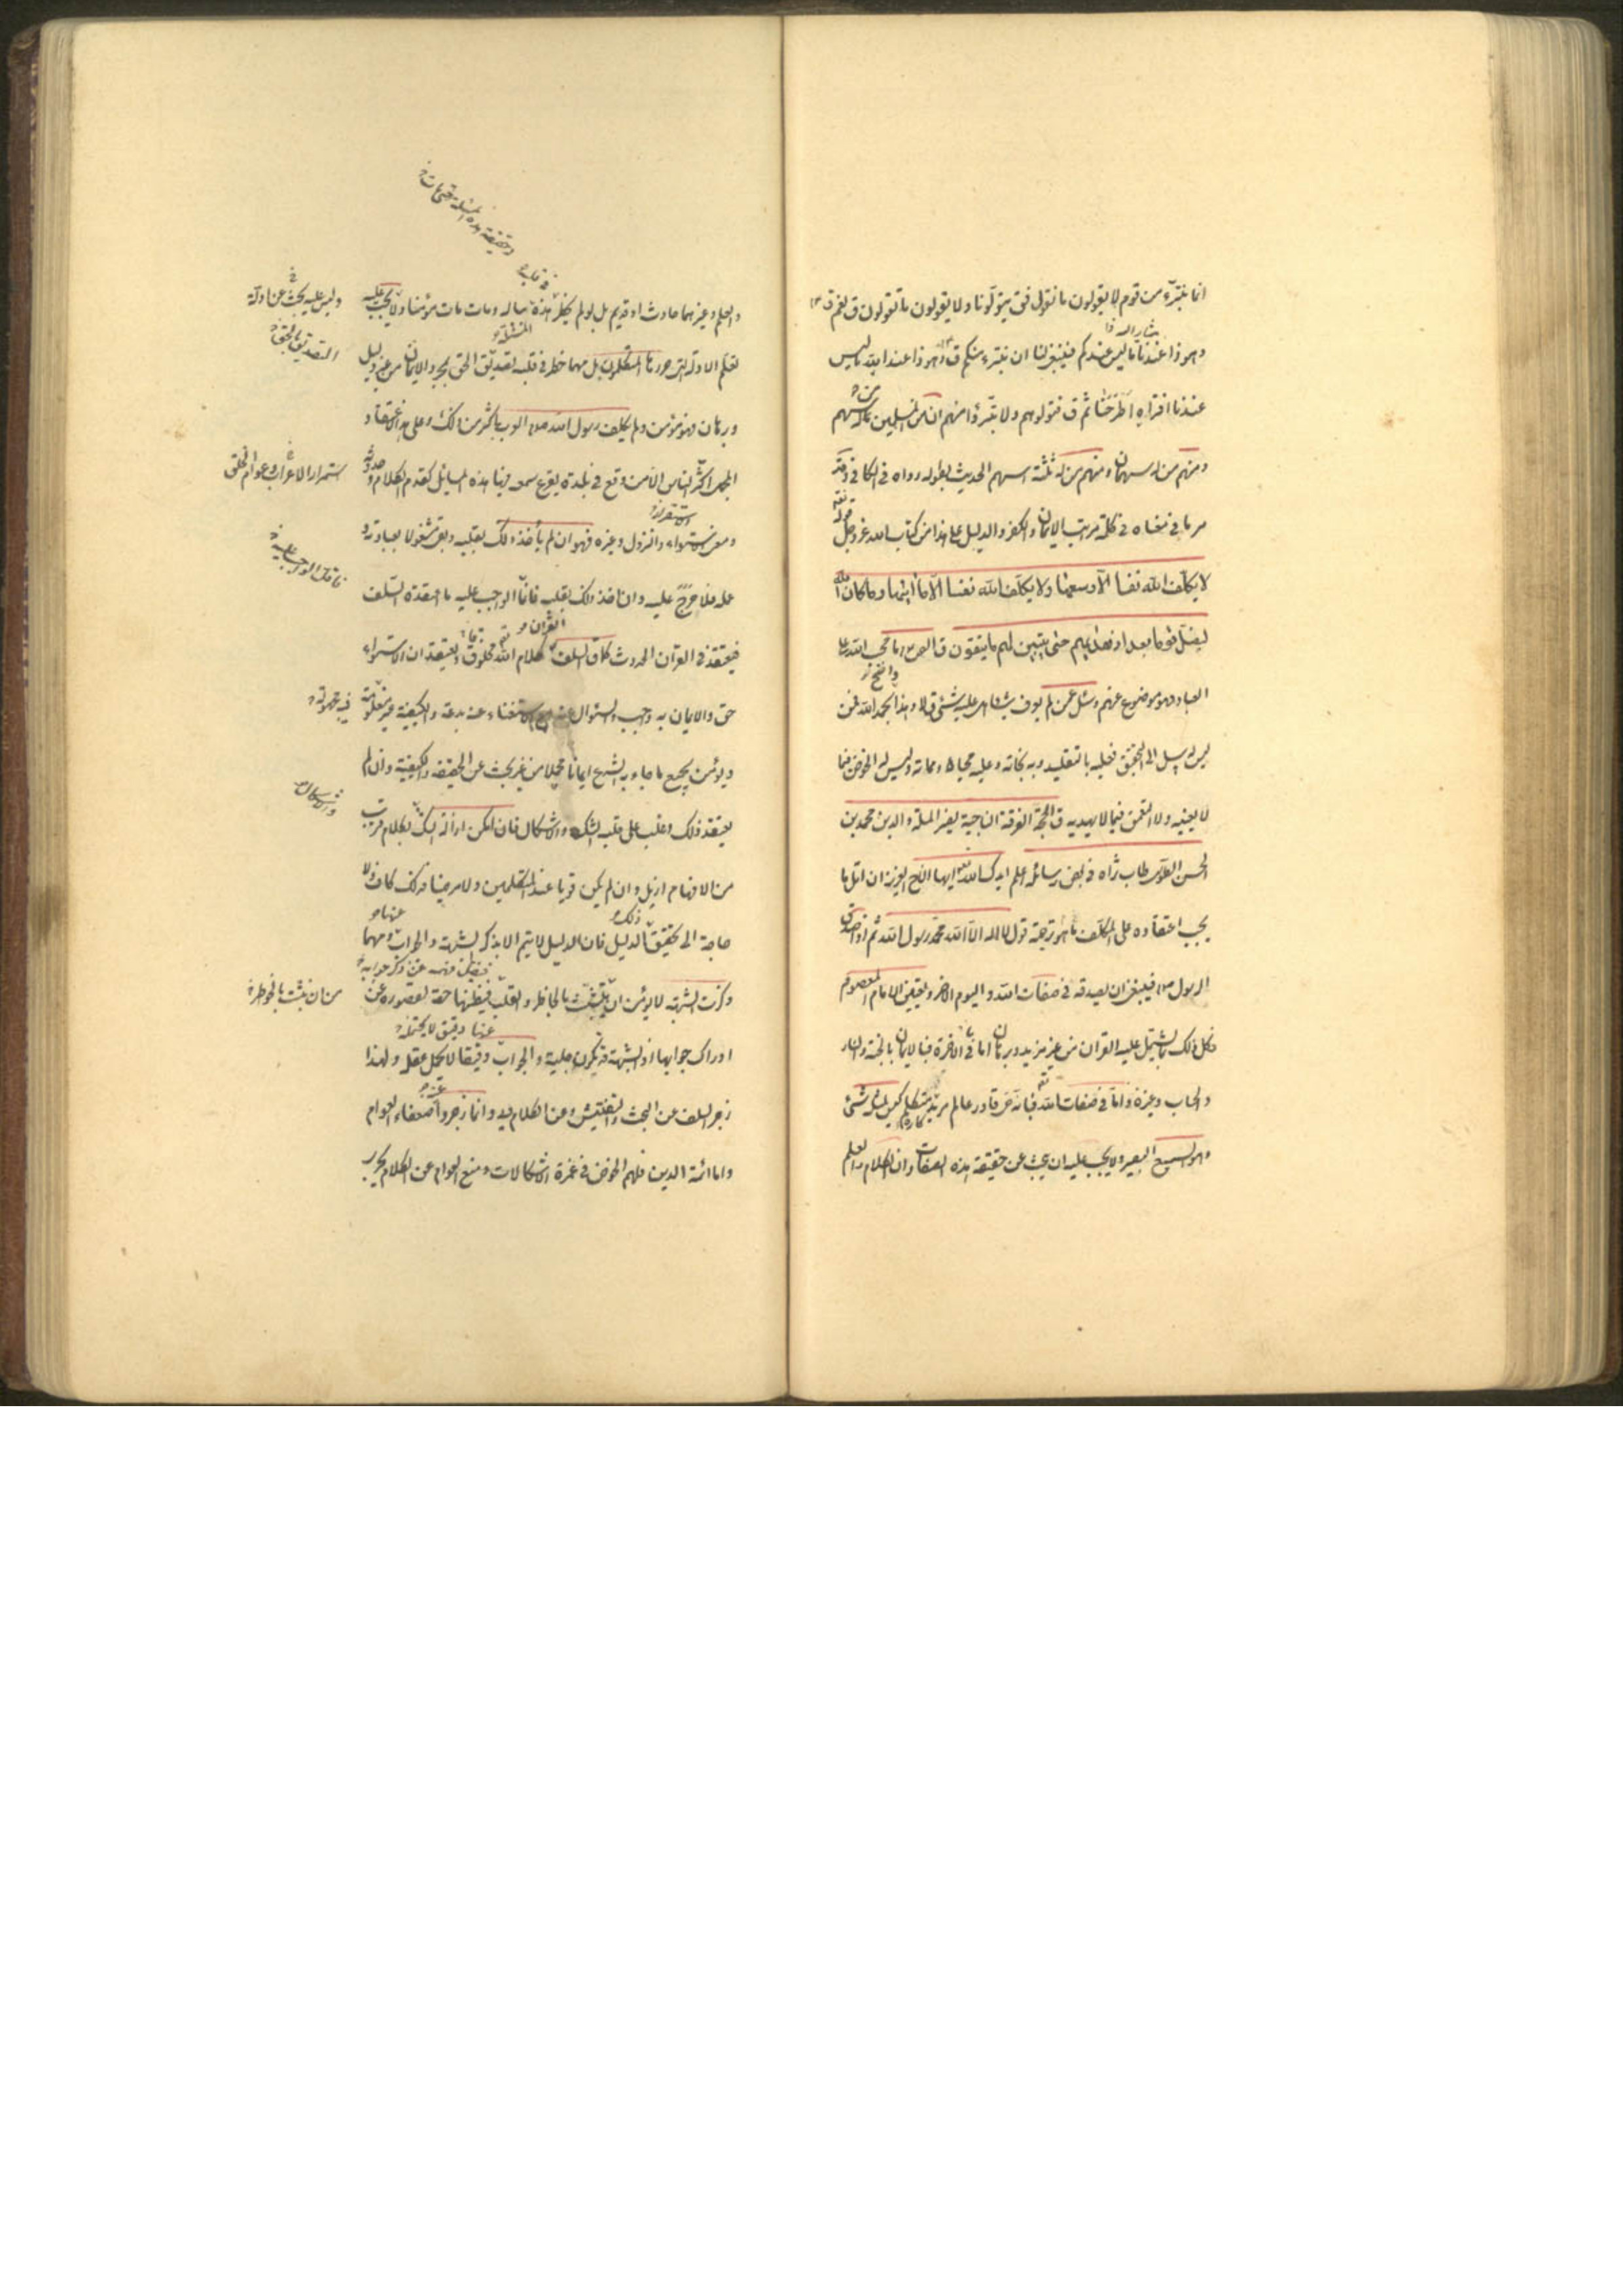 انما نتبرّء من قوم لا يقولون ما نقول فق يتولّونا ولا يقولون ما تقولون ق نعم ق
وهو ذا عندنا ما ليس عندكم فينبغى لنا ان نتبرء منكم ق وهو ذا عند الله ما ليس
عندنا افتراه اطّرحنا ثم ق فتولوهم ولا تبرّؤا منهم ان من المسلمين من له سهم
ومنهم من له سهمان ومنهم من له ثلثة اسهم الحديث بطوله رواه فى الكافى وقد
مر ما فى معناه فى كلمة مراتب الايمان والكفر والدليل على هذا من كتاب الله عز وجل قوله تعه
لا يكلّف الله نفسا الّا وسعها ولا يكلّف الله نفسا الّا ما اتيها وما كان الله
ليضلّ قوما بعد اذ هديهم حتى يتبين لهم ما يتقون قال ص ما حجب الله علم
العباد فهو موضوع عنهم وسئل عمن لم يعرف شيئا هل عليه شئ قال لا وهذا بحمد الله واضح فمن
ليس له سبيل الى التحقيق فعليه بالتقليد وبه نجاته وعليه محياه ومماته وليس له الخوض فيما
لا يعنيه ولا التعمق فيما لا يهديه ق الحجة الفرقة الناجية نصير الملة والدين محمد بن
الحسن الطوسى طاب ثراه فى بعض رسائله اعلم ايدك الله تعه ايها الاخ العزيز ان اقل ما
يجب اعتقاده على المكلّف ما هو ترجمة قول لا اله الا الله محمد رسول الله ثم اذا صدق
الرسول فينبغى ان يصدقه فى صفات الله واليوم الاخر وتعيين الامام المعصوم
فكل ذلك بما يشتمل عليه القران من غير مزيد وبرهان اما فى الاخرة فبالايمان بالجنة والنار
والحساب وغيره واما فى صفات الله تعه فبانه حى قادر عالم مريد متكلم كاره ليس كمثله شئ
وهو السميع البصير ولا يجب عليه ان يبحث عن حقيقة هذه الصفات وان الكلام والعلم
وحقيقة هذه المسئلة حتى مات
فى قلبه
والعلم وغيرهما حادث او قديم بل لو لم يخطر هذه بباله ومات مات مؤمنا ولا يجب عليه
المسئلة
وليس عليه بحث عن ادلة
تعلّم الادلة التى حررها المتكلمون بل مهما خطر فى قلبه تصديق الحق بمجرد الايمان من غير دليل
التصديق بالحق
وبرهان فهو مؤمن ولم يكلف رسول الله العرب باكثر من ذلك وعلى هذا الاعتقاد
المجمل اكثر الناس الّا من وقع فى بلدة يقرع سمعه فيها هذه المسائل كقدم الكلام وحدوثه
استمرار الاعراب وعوام الخلق
ومعنى الاستواء والنزول وغيره فهو ان لم يأخذ ذلك بقلبه وبقى مشغولا بعبادته و
عمله فلا حرج عليه وان اخذ ذلك بقلبه فانّما الواجب عليه ما اعتقده السّلف
فاقل الواجب عليه
فيعتقد فى القرآن الحدوث كما ق السلف القران كلام الله تعه مخلوق ويعتقد ان الاستواء
حق والايمان به واجب والسؤال عنه مع الاستغناء عنه بدعة والكيفية غير معلومة
فيه مجهولة
ويؤمن بجميع ما جاء به الشرع ايمانا مجملا من غير بحث عن الحقيقة والكيفية وان لم
يعتقد ذلك وغلب على قلبه الشك والاشكال فان امكن ازالة الشك بكلام قريب
والاشكال
من الافهام ازيل وان لم يكن قويا عند المتكلمين ولا مرضيا فذلك كاف ولا
حاجة الى تحقيق الدليل فان الدليل لا يتم الا بذكر الشبهة والجواب عنها ومهما
ذكرت الشبهة لا يؤمن ان يتشبث بالخاطر والقلب فيظنها حقة لقصوره عن
من ان يتشبث بالخواطر
ادراك جوابها اذ الشبهة قد تكون جلية والجواب دقيقا لا يحمل عقله ولهذا
عنها دقيق لا يحتمله
زجر السلف عن البحث والتفتيش وعن الكلام فيه وانما زجروا عنه ضعفاء العوام
واما ائمة الدين فلهم الخوض فى غمرة الاشكالات ومنع العوام عن الكلام يجرى